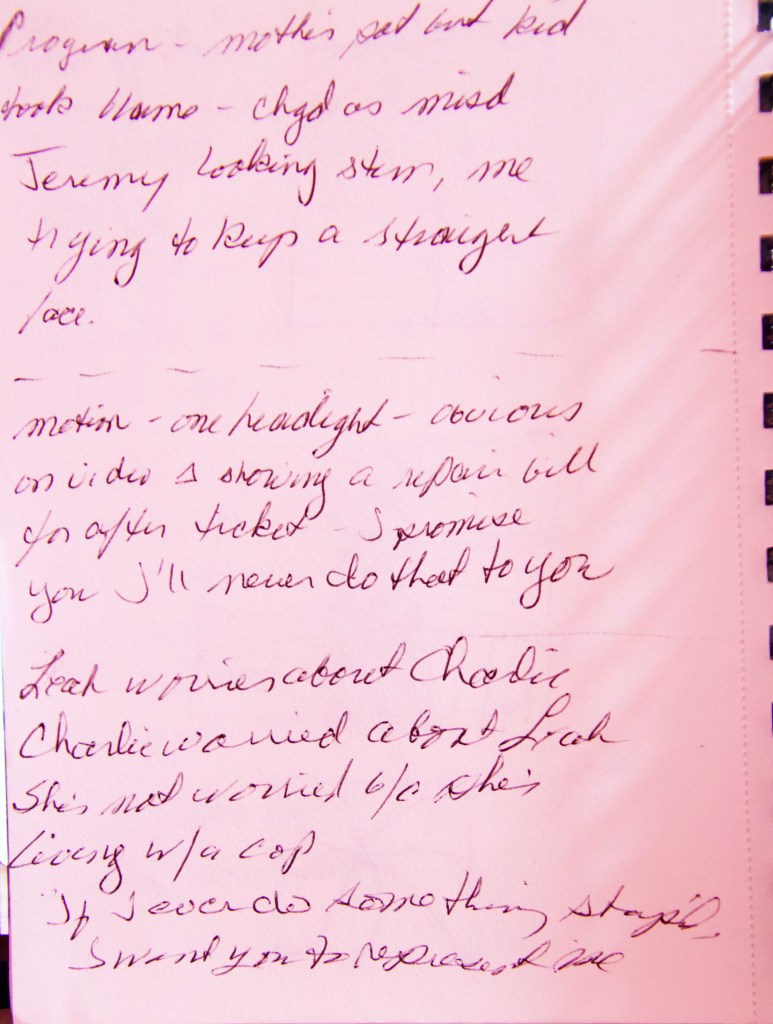 Program - mother's pot but kid
took blame - chgd as misd
Jeremy looking stern, me
trying to keep a straight
face.
motion - one headlight - obvious
on video & showing a repair bill
for after ticket - I promise
you I'll never do that to you
Leah worries about Charlie
Charlie worried about Leah
She's not worried b/c she's
living w/a cop
"If I ever do something stupid,
I want you to represent me